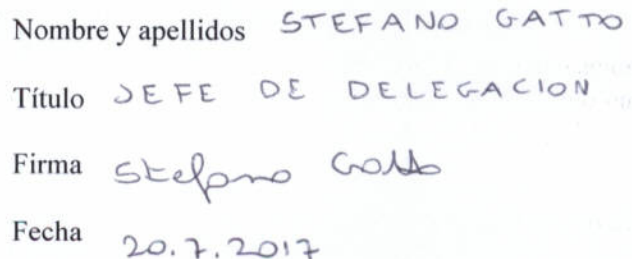 Nombre y apellidos STEFANO GATTO
Título JEFE DE DELEGACION
Firma Stefano Gatto
Fecha 20.7.2017